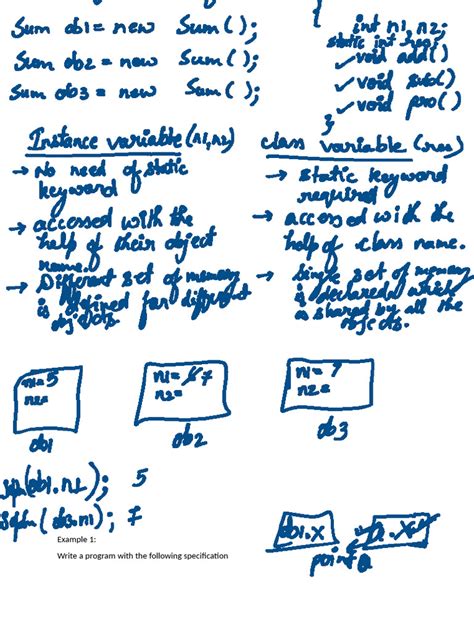 Sum ob1 = new Sum();
Sum ob2 = new Sum();
Sum ob3 = new Sum();
int n1, n2;
static int res;
✓ void add()
✓ void sub()
✓ void pro()
}
Instance variable (n1, n2)
→ No need of static
keyword
→ accessed with the
help of their object
name.
→ Different set of memory
is defined for different
objects.
class variable (res)
→ static keyword
required
→ accessed with the
help of class name.
→ Single set of memory
is declared which
is shared by all the
objects.
n1= 5
n2=
ob1
n1= 7
n2=
ob2
n1= 7
n2=
ob3
(ob1.n1); 5
(ob3.n1); 7
Example 1:
Write a program with the following specification
ob1.x
point